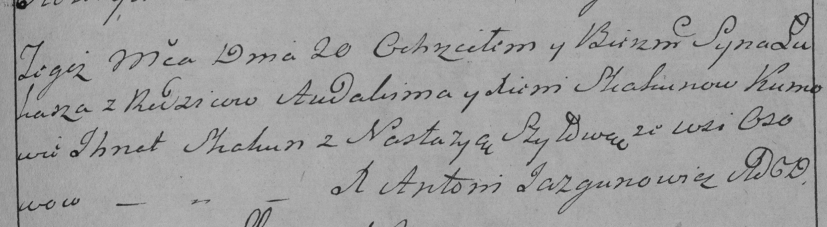 Tegoż Mca Dnia 20 Ochrzciłem y Bierzm Syna Łu
kasza z Rodzicow Audakima y Xieni Skakunow Kumo
wie Ihnat Skakun z Nastazyą Szyłowną ze wsi Oso
wow — „ — X Antoni Jazgunowicz